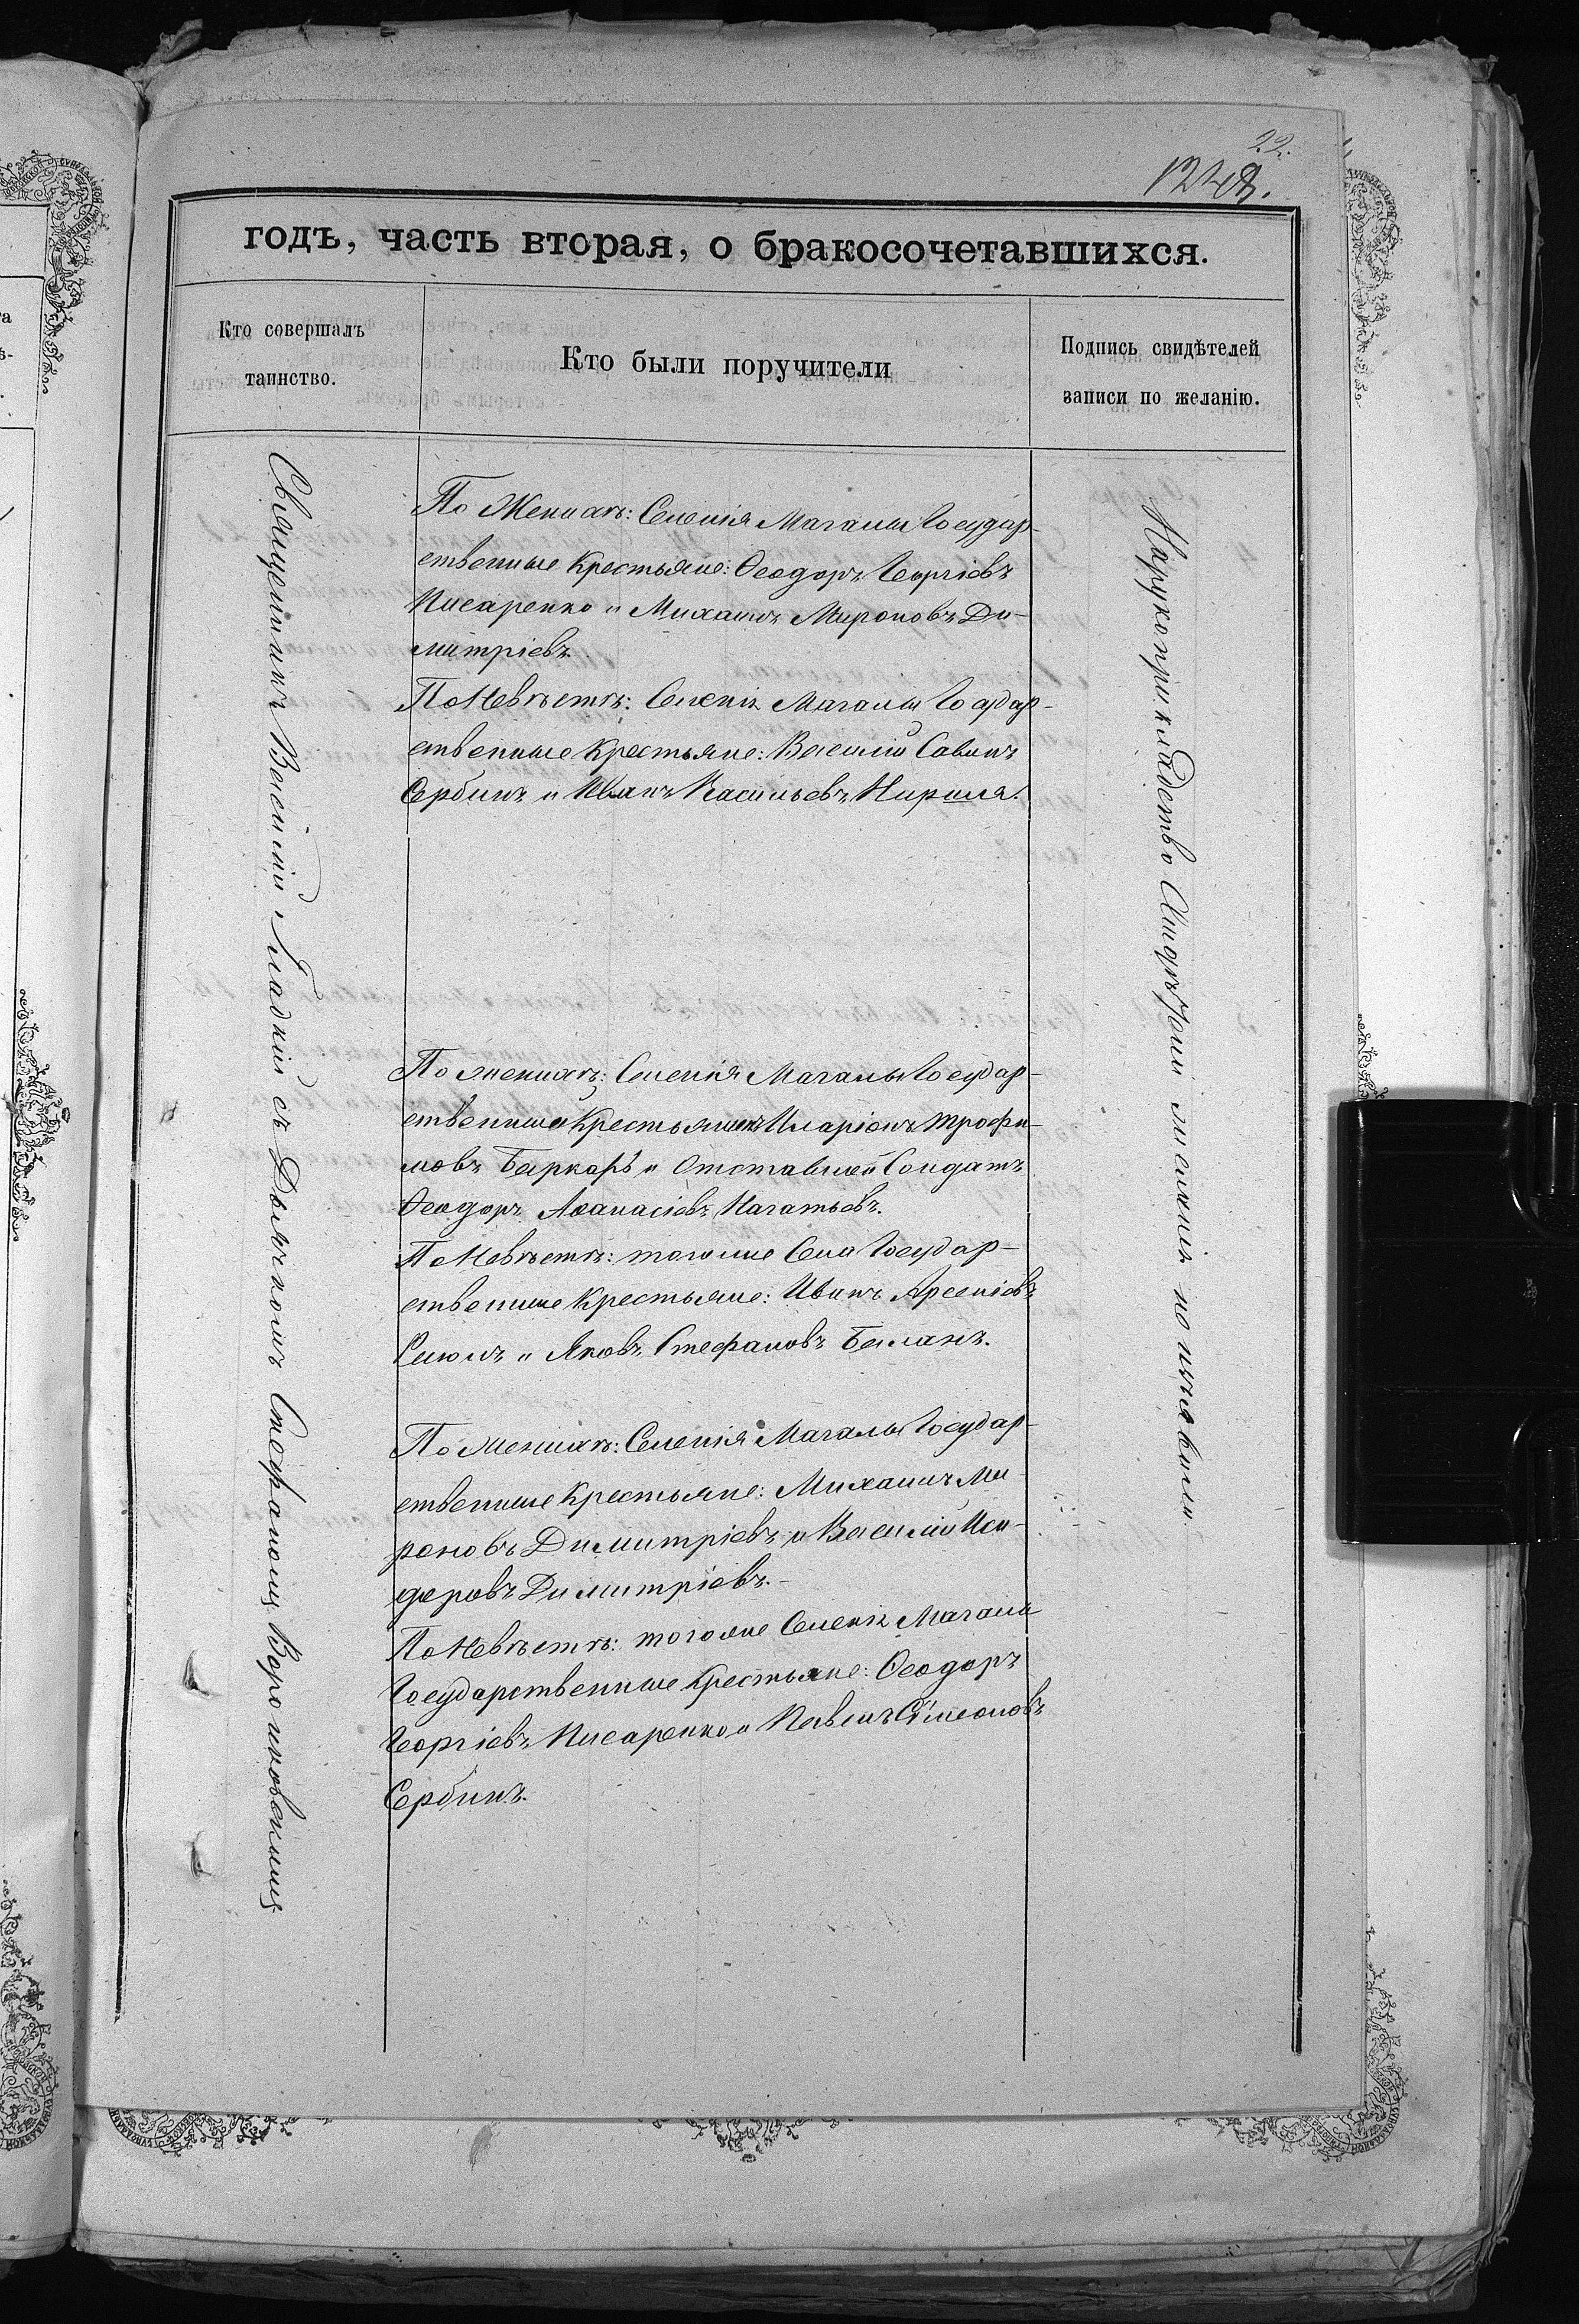 22.
годъ, часть вторая, о бракосочетавшихся.
Кто совершалъ
таинство.
Кто были поручители
Подпись свидѣтелей
записи по желанію.
Священникъ Василій Гладкій съ Дьячкомъ Стефаномъ
По Женихѣ: Селенія Магалы Государ-
ственные Крестьяне: Ѳеодоръ Георгіевъ
Писаренко и Михаилъ Мироновъ Ди-
митріевъ
По Невѣстѣ: Селенія Магалы Государ-
ственные Крестьяне: Василій Савинъ
Сербинъ и Иванъ Васильевъ
По женихѣ: Селенія Магалы Государ-
ственный Крестьянинъ Иларіонъ Трофи-
мовъ и Отставной Солдатъ
Ѳеодоръ Аѳанасіевъ
По Невѣстѣ: того же Села Государ-
ственные Крестьяне: Иванъ Арсеніевъ
и Яковъ Стефановъ Баланъ.
По женихѣ: Селенія Магалы Государ-
ственные Крестьяне: Михаилъ Ми-
роновъ Димитріевъ и Василій Иси-
доровъ Димитріевъ.-
По Невѣстѣ: того же Селенія Магалы
Государственные Крестьяне: Ѳеодоръ
Георгіевъ Писаренко и Павелъ Симеоновъ
Сербинъ.
На рукоприкладство